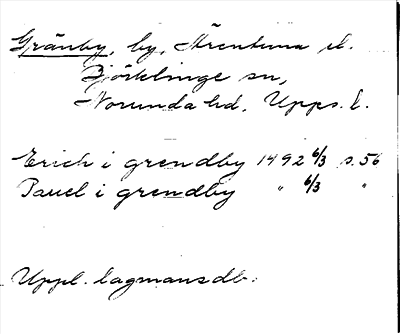 Gränby, by, Ärentuna sn.
Björklinge sn,
Norunda hd, Upps. l.
Erich i grendby 1492 6/3 s. 56
Pauel i grendby " 6/3 "
Uppl. lagmansdb.